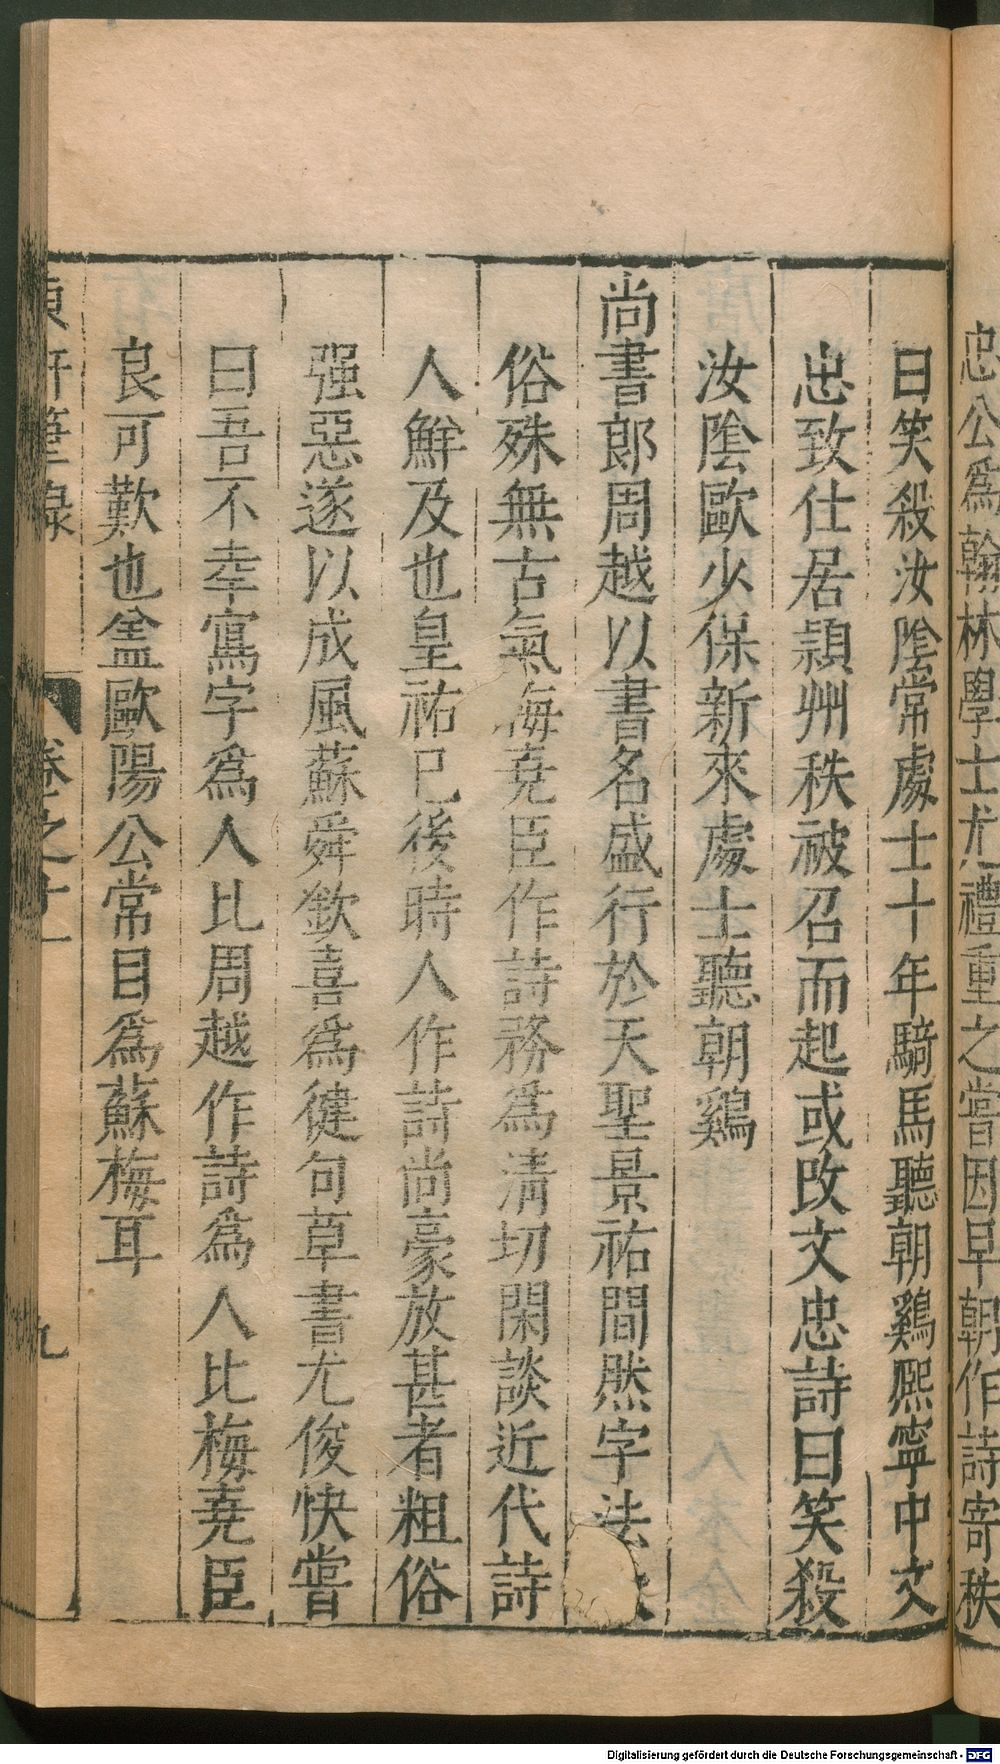 忠公爲翰林學士尤禮重之嘗因早朝作詩寄秩
曰笑殺汝隂常處士十年騎馬聽朝鷄熈寧中文
忠致仕居頴州秩被召而起或改文忠詩曰笑殺
汝隂歐少保新來處士聽朝鷄
尚書郎周越以書名盛行於天聖景祐間然字法
俗殊無古氣梅堯臣作詩務爲淸切閑談近代詩
人鮮及也皇祐已後時人作詩尚豪放甚者粗俗
强惡遂以成風蘇舜欽喜爲健句草書尤俊快嘗
曰吾不幸寫字爲人比周越作詩爲人比梅堯臣
良可歎也葢歐陽公常目爲蘇梅耳
東軒筆錄
卷之十一
九
Digitalisierung gefördert durch die Deutsche Forschungsgemeinschaft - DFG